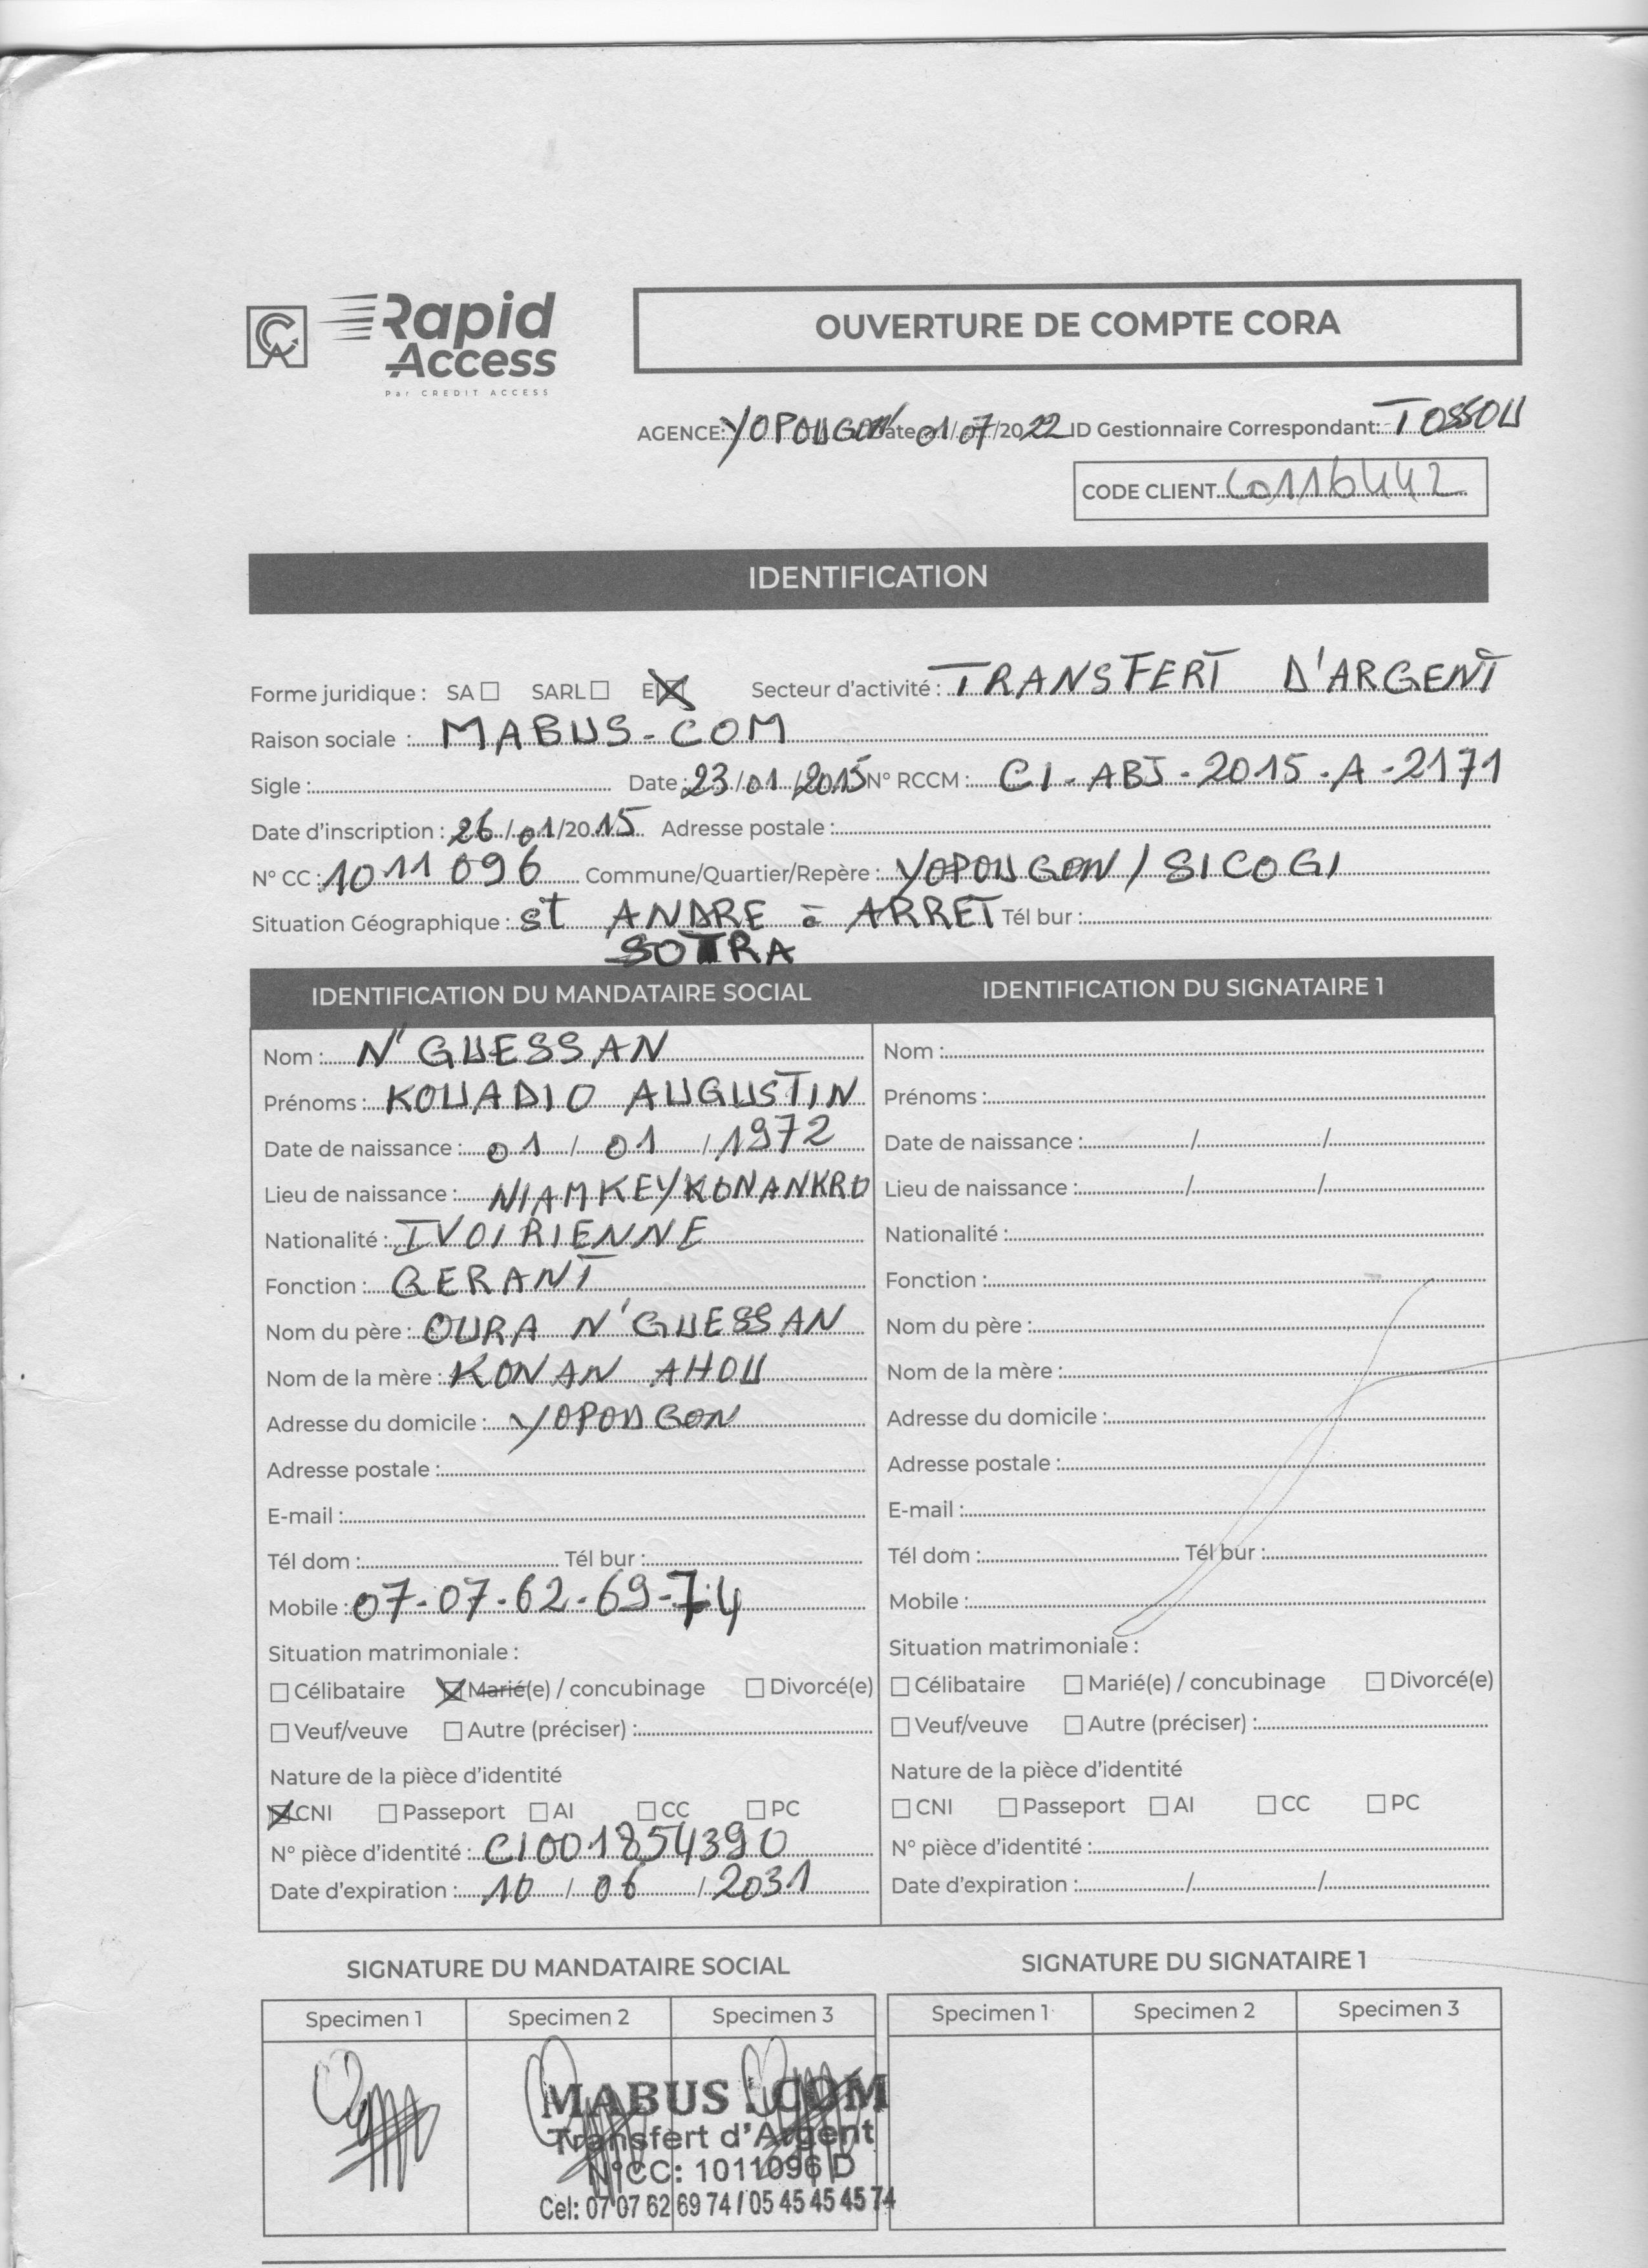 CA Rapid
Access
Par CREDIT ACCESS
OUVERTURE DE COMPTE CORA
AGENCE: YOPOUGON Date 01/07/2022 ID Gestionnaire Correspondant: TOSSOU
CODE CLIENT C0116442
IDENTIFICATION
Forme juridique : SA ☐ SARL ☐ E☒ Secteur d'activité : TRANSFERT D'ARGENT
Raison sociale : MABUS-COM
Sigle : Date : 23/01/2015 N° RCCM : CI-ABJ-2015-A-2171
Date d'inscription : 26/01/2015 Adresse postale :
N° CC : 1011096 Commune/Quartier/Repère : YOPOUGON / SICOGI
Situation Géographique : St ANDRE à ARRET Tél bur :
SOTRA
IDENTIFICATION DU MANDATAIRE SOCIAL IDENTIFICATION DU SIGNATAIRE 1
Nom : N'GUESSAN Nom :
Prénoms : KOUADIO AUGUSTIN Prénoms :
Date de naissance : 01/01/1972 Date de naissance : / /
Lieu de naissance : NIAMKEYKONANKRO Lieu de naissance : / /
Nationalité : IVOIRIENNE Nationalité :
Fonction : GERANT Fonction :
Nom du père : OURA N'GUESSAN Nom du père :
Nom de la mère : KONAN AHOU Nom de la mère :
Adresse du domicile : YOPOUGON Adresse du domicile :
Adresse postale : Adresse postale :
E-mail : E-mail :
Tél dom : Tél bur : Tél dom : Tél bur :
Mobile : 07-07-62-69-74 Mobile :
Situation matrimoniale : Situation matrimoniale :
☐ Célibataire ☒ Marié(e) / concubinage ☐ Divorcé(e) ☐ Célibataire ☐ Marié(e) / concubinage ☐ Divorcé(e)
☐ Veuf/veuve ☐ Autre (préciser) : ☐ Veuf/veuve ☐ Autre (préciser) :
Nature de la pièce d'identité Nature de la pièce d'identité
☒ CNI ☐ Passeport ☐ AI ☐ CC ☐ PC ☐ CNI ☐ Passeport ☐ AI ☐ CC ☐ PC
N° pièce d'identité : CI001854390 N° pièce d'identité :
Date d'expiration : 10/06/2031 Date d'expiration : / /
SIGNATURE DU MANDATAIRE SOCIAL SIGNATURE DU SIGNATAIRE 1
Specimen 1 Specimen 2 Specimen 3 Specimen 1 Specimen 2 Specimen 3
MABUS . COM
Transfert d'Argent
N°CC: 1011096 D
Cel: 07 07 62 69 74 / 05 45 45 45 74